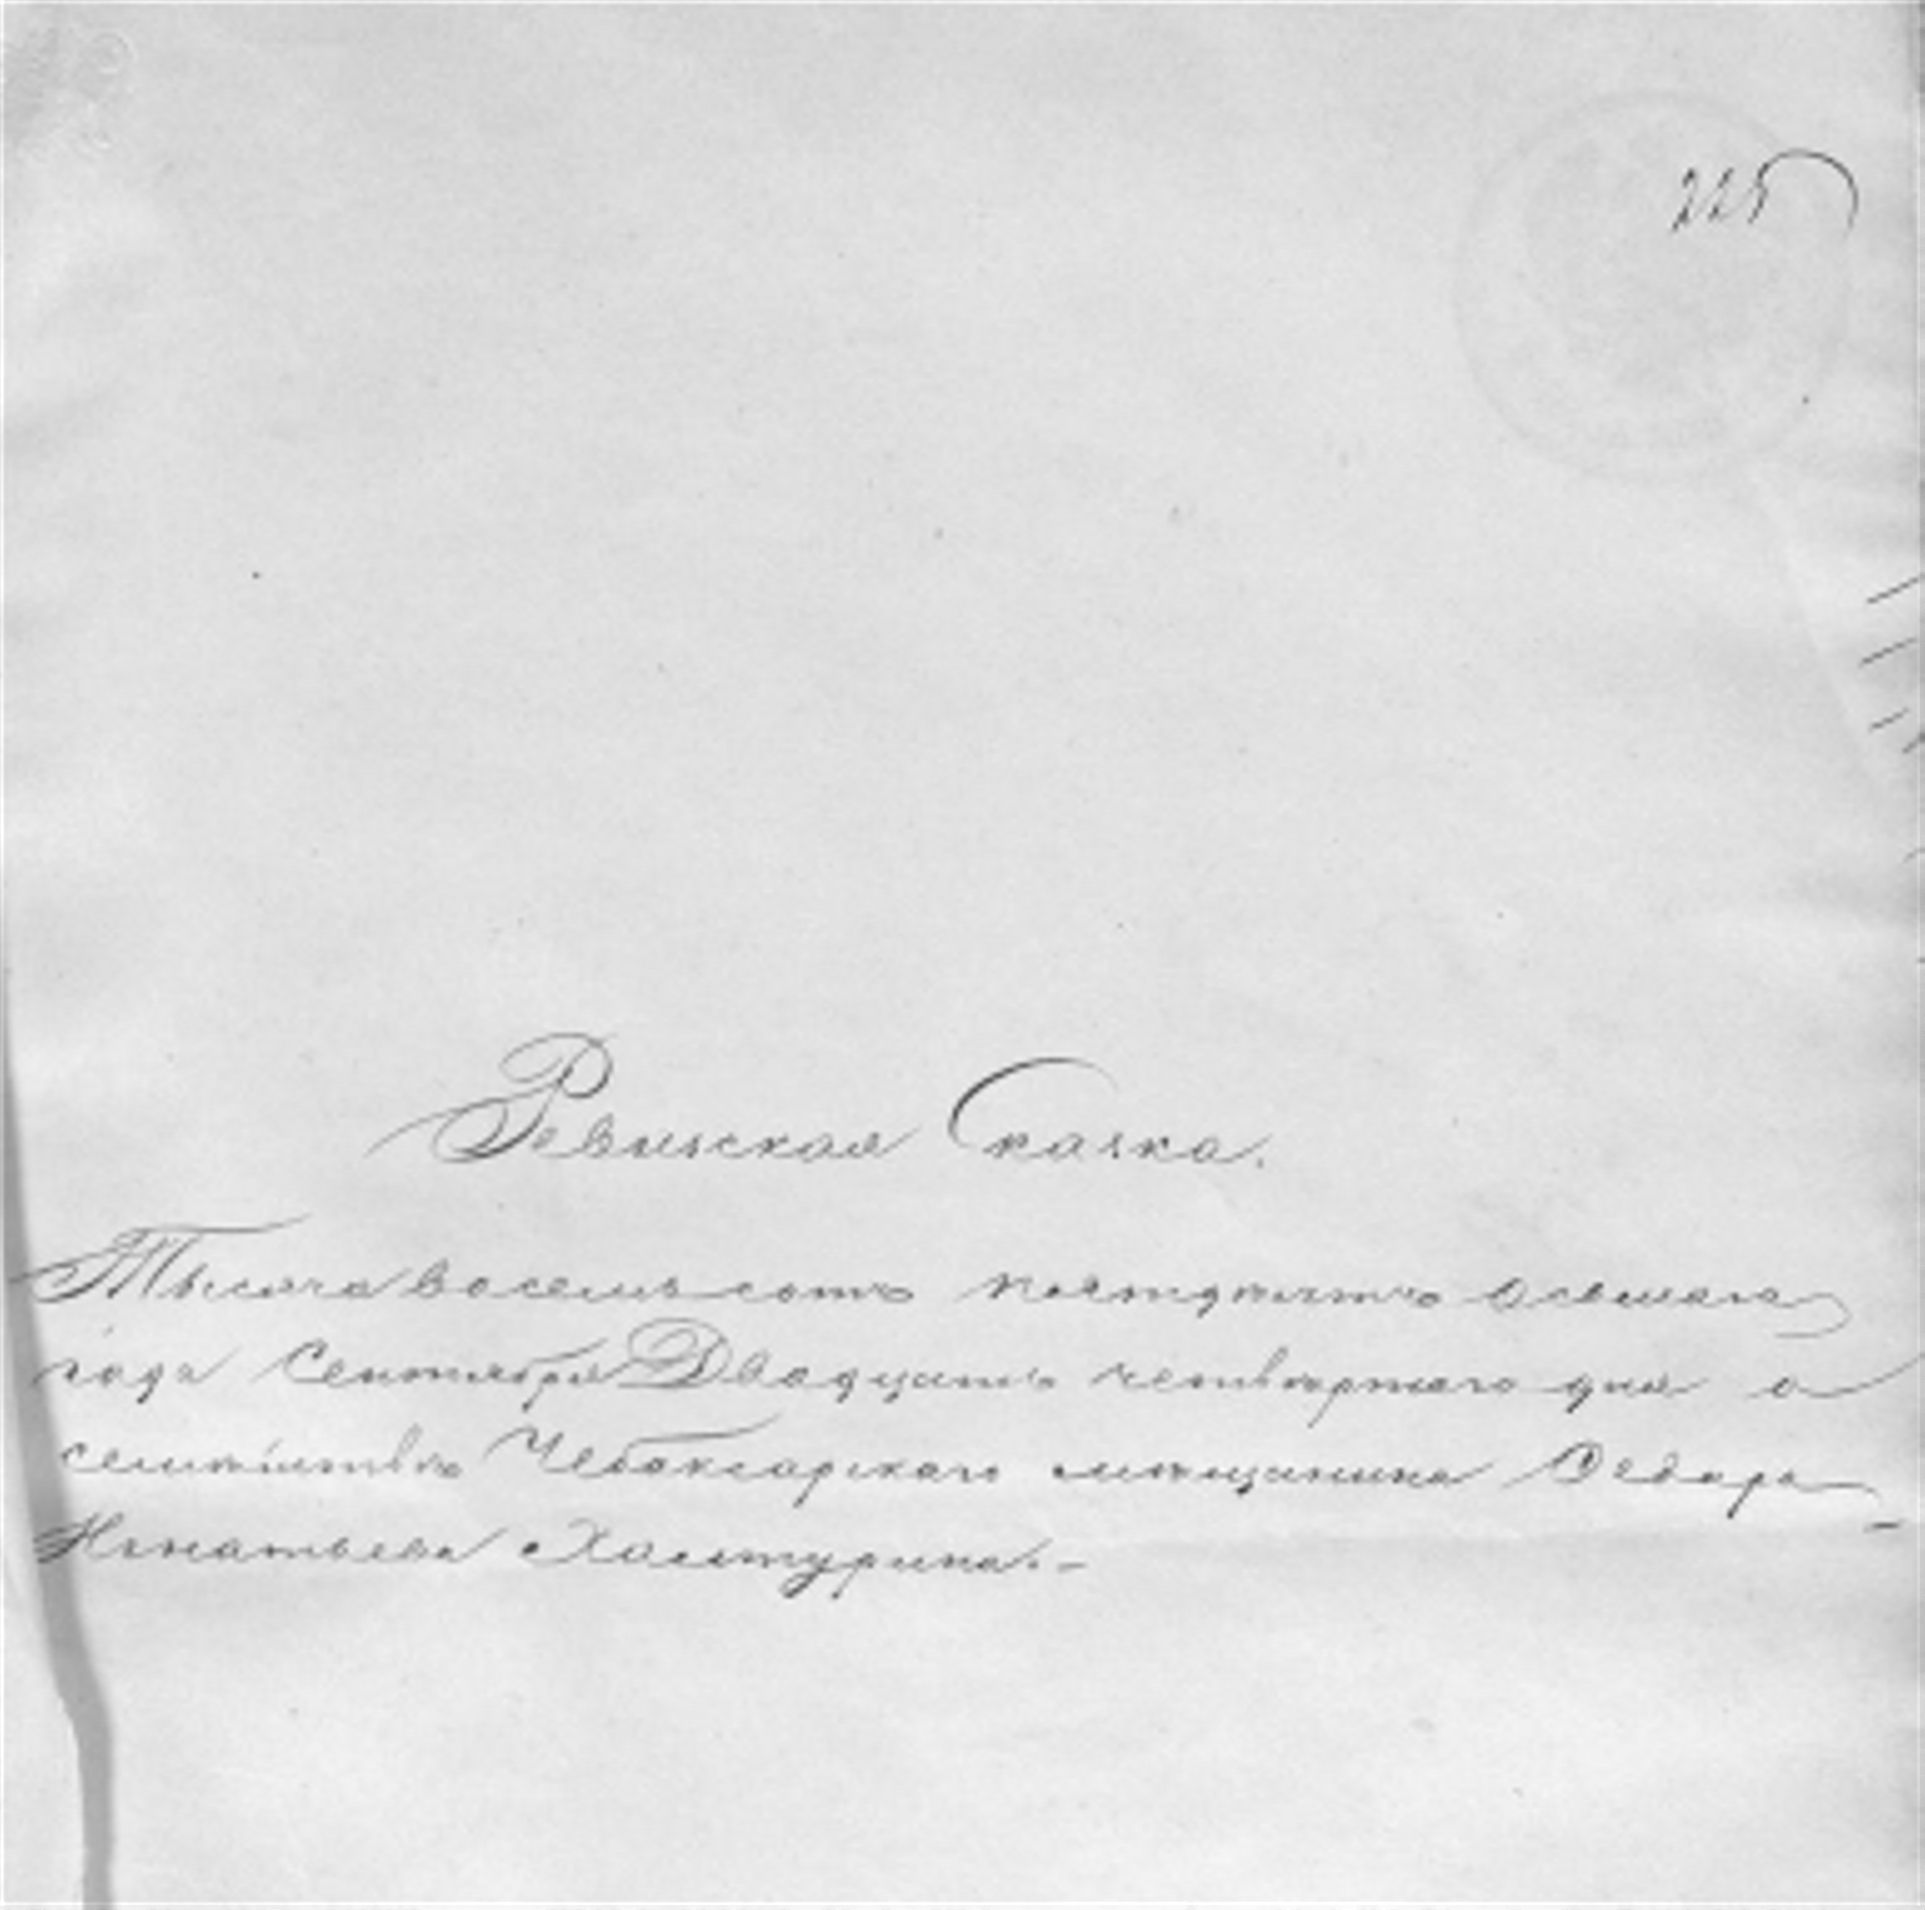 225
Ревизская Сказка.
Тысяча восемь сотъ пятдесятъ осьмаго
года Сентября Двадцать четвертаго дня о
семействѣ Чебоксарскаго мѣщанина Ѳедора
Игнатьева Халтурина.-